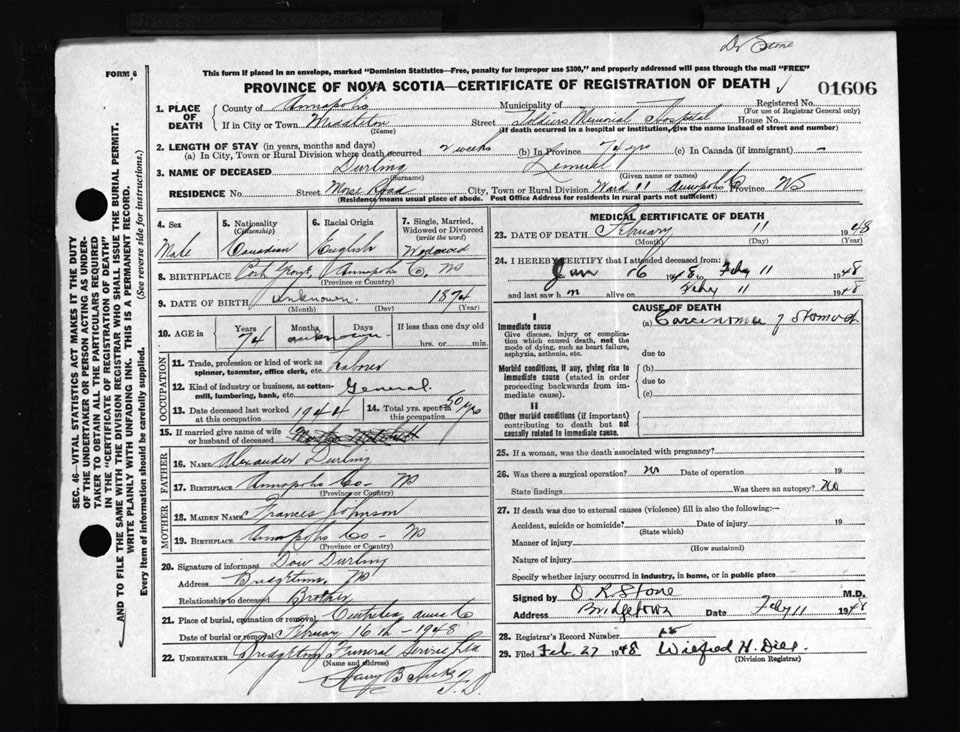 Dr Stone
FORM 6
This form if placed in an envelope, marked "Dominion Statistics—Free, penalty for improper use $300," and properly addressed will pass through the mail "FREE"
PROVINCE OF NOVA SCOTIA—CERTIFICATE OF REGISTRATION OF DEATH
01606
1. PLACE OF DEATH
County of Annapolis Municipality of Registered No.
(For use of Registrar General only)
If in City or Town Middleton Street Soldiers Memorial Hospital House No.
(Name) (If death occurred in a hospital or institution, give the name instead of street and number)
2. LENGTH OF STAY (in years, months and days)
(a) In City, Town or Rural Division where death occurred 2 weeks (b) In Province 74 yrs (c) In Canada (if immigrant) -
3. NAME OF DECEASED Durling Lemuel
(Surname) (Given name or names)
RESIDENCE No. Street Morse Road City, Town or Rural Division Ward 11 Annapolis Co Province NS
(Residence means usual place of abode. Post Office Address for residents in rural parts not sufficient)
4. Sex
Male
5. Nationality (Citizenship)
Canadian
6. Racial Origin
English
7. Single, Married, Widowed or Divorced (write the word)
Widowed
8. BIRTHPLACE Port George Annapolis Co. NS
(Province or Country)
9. DATE OF BIRTH unknown 1874
(Month) (Day) (Year)
10. AGE in
Years Months Days If less than one day old
74 unknown hrs. or min.
OCCUPATION
11. Trade, profession or kind of work as spinner, teamster, office clerk, etc. Laborer
12. Kind of industry or business, as cotton-mill, lumbering, bank, etc. General.
13. Date deceased last worked at this occupation 1944
14. Total yrs. spent in this occupation 50 yrs
15. If married give name of wife or husband of deceased
FATHER
16. NAME Alexander Durling
17. BIRTHPLACE Annapolis Co - NS
(Province or Country)
MOTHER
18. MAIDEN NAME Frances Johnson
19. BIRTHPLACE Annapolis Co - NS
(Province or Country)
20. Signature of informant Dow Durling
Address Bridgetown, NS
Relationship to deceased Brother
21. Place of burial, cremation or removal
Date of burial or removal February 16th - 1948
22. UNDERTAKER Bridgetown Funeral Service Ltd
(Name and address)
Harry B F.D.
MEDICAL CERTIFICATE OF DEATH
23. DATE OF DEATH February 11 1948
(Month) (Day) (Year)
24. I HEREBY CERTIFY that I attended deceased from:
Jan 16 1948 to Feby 11 1948
and last saw him alive on Feby 11 1948
CAUSE OF DEATH
I
Immediate cause (a) Carcinoma of Stomach
Give disease, injury or complication which caused death, not the mode of dying, such as heart failure, asphyxia, asthenia, etc.
due to
Morbid conditions, if any, giving rise to immediate cause (stated in order proceeding backwards from immediate cause). (b)
due to
(c)
II
Other morbid conditions (if important) contributing to death but not causally related to immediate cause.
25. If a woman, was the death associated with pregnancy?
26. Was there a surgical operation? No Date of operation 19
State findings Was there an autopsy? No
27. If death was due to external causes (violence) fill in also the following:—
Accident, suicide or homicide? Date of injury 19
(State which)
Manner of injury
(How sustained)
Nature of injury
Specify whether injury occurred in industry, in home, or in public place
Signed by O R Stone M.D.
Address Bridgetown Date Feby 11 1948
28. Registrar's Record Number
29. Filed Feb. 27 1948 Wilfred H. Dill.
(Division Registrar)
SEC. 46—VITAL STATISTICS ACT MAKES IT THE DUTY
OF THE UNDERTAKER OR PERSON ACTING AS UNDER-
TAKER TO OBTAIN ALL THE PARTICULARS REQUIRED
IN THE "CERTIFICATE OF REGISTRATION OF DEATH"
AND TO FILE THE SAME WITH THE DIVISION REGISTRAR WHO SHALL ISSUE THE BURIAL PERMIT.
WRITE PLAINLY WITH UNFADING INK. THIS IS A PERMANENT RECORD.
Every item of information should be carefully supplied. (See reverse side for instructions.)